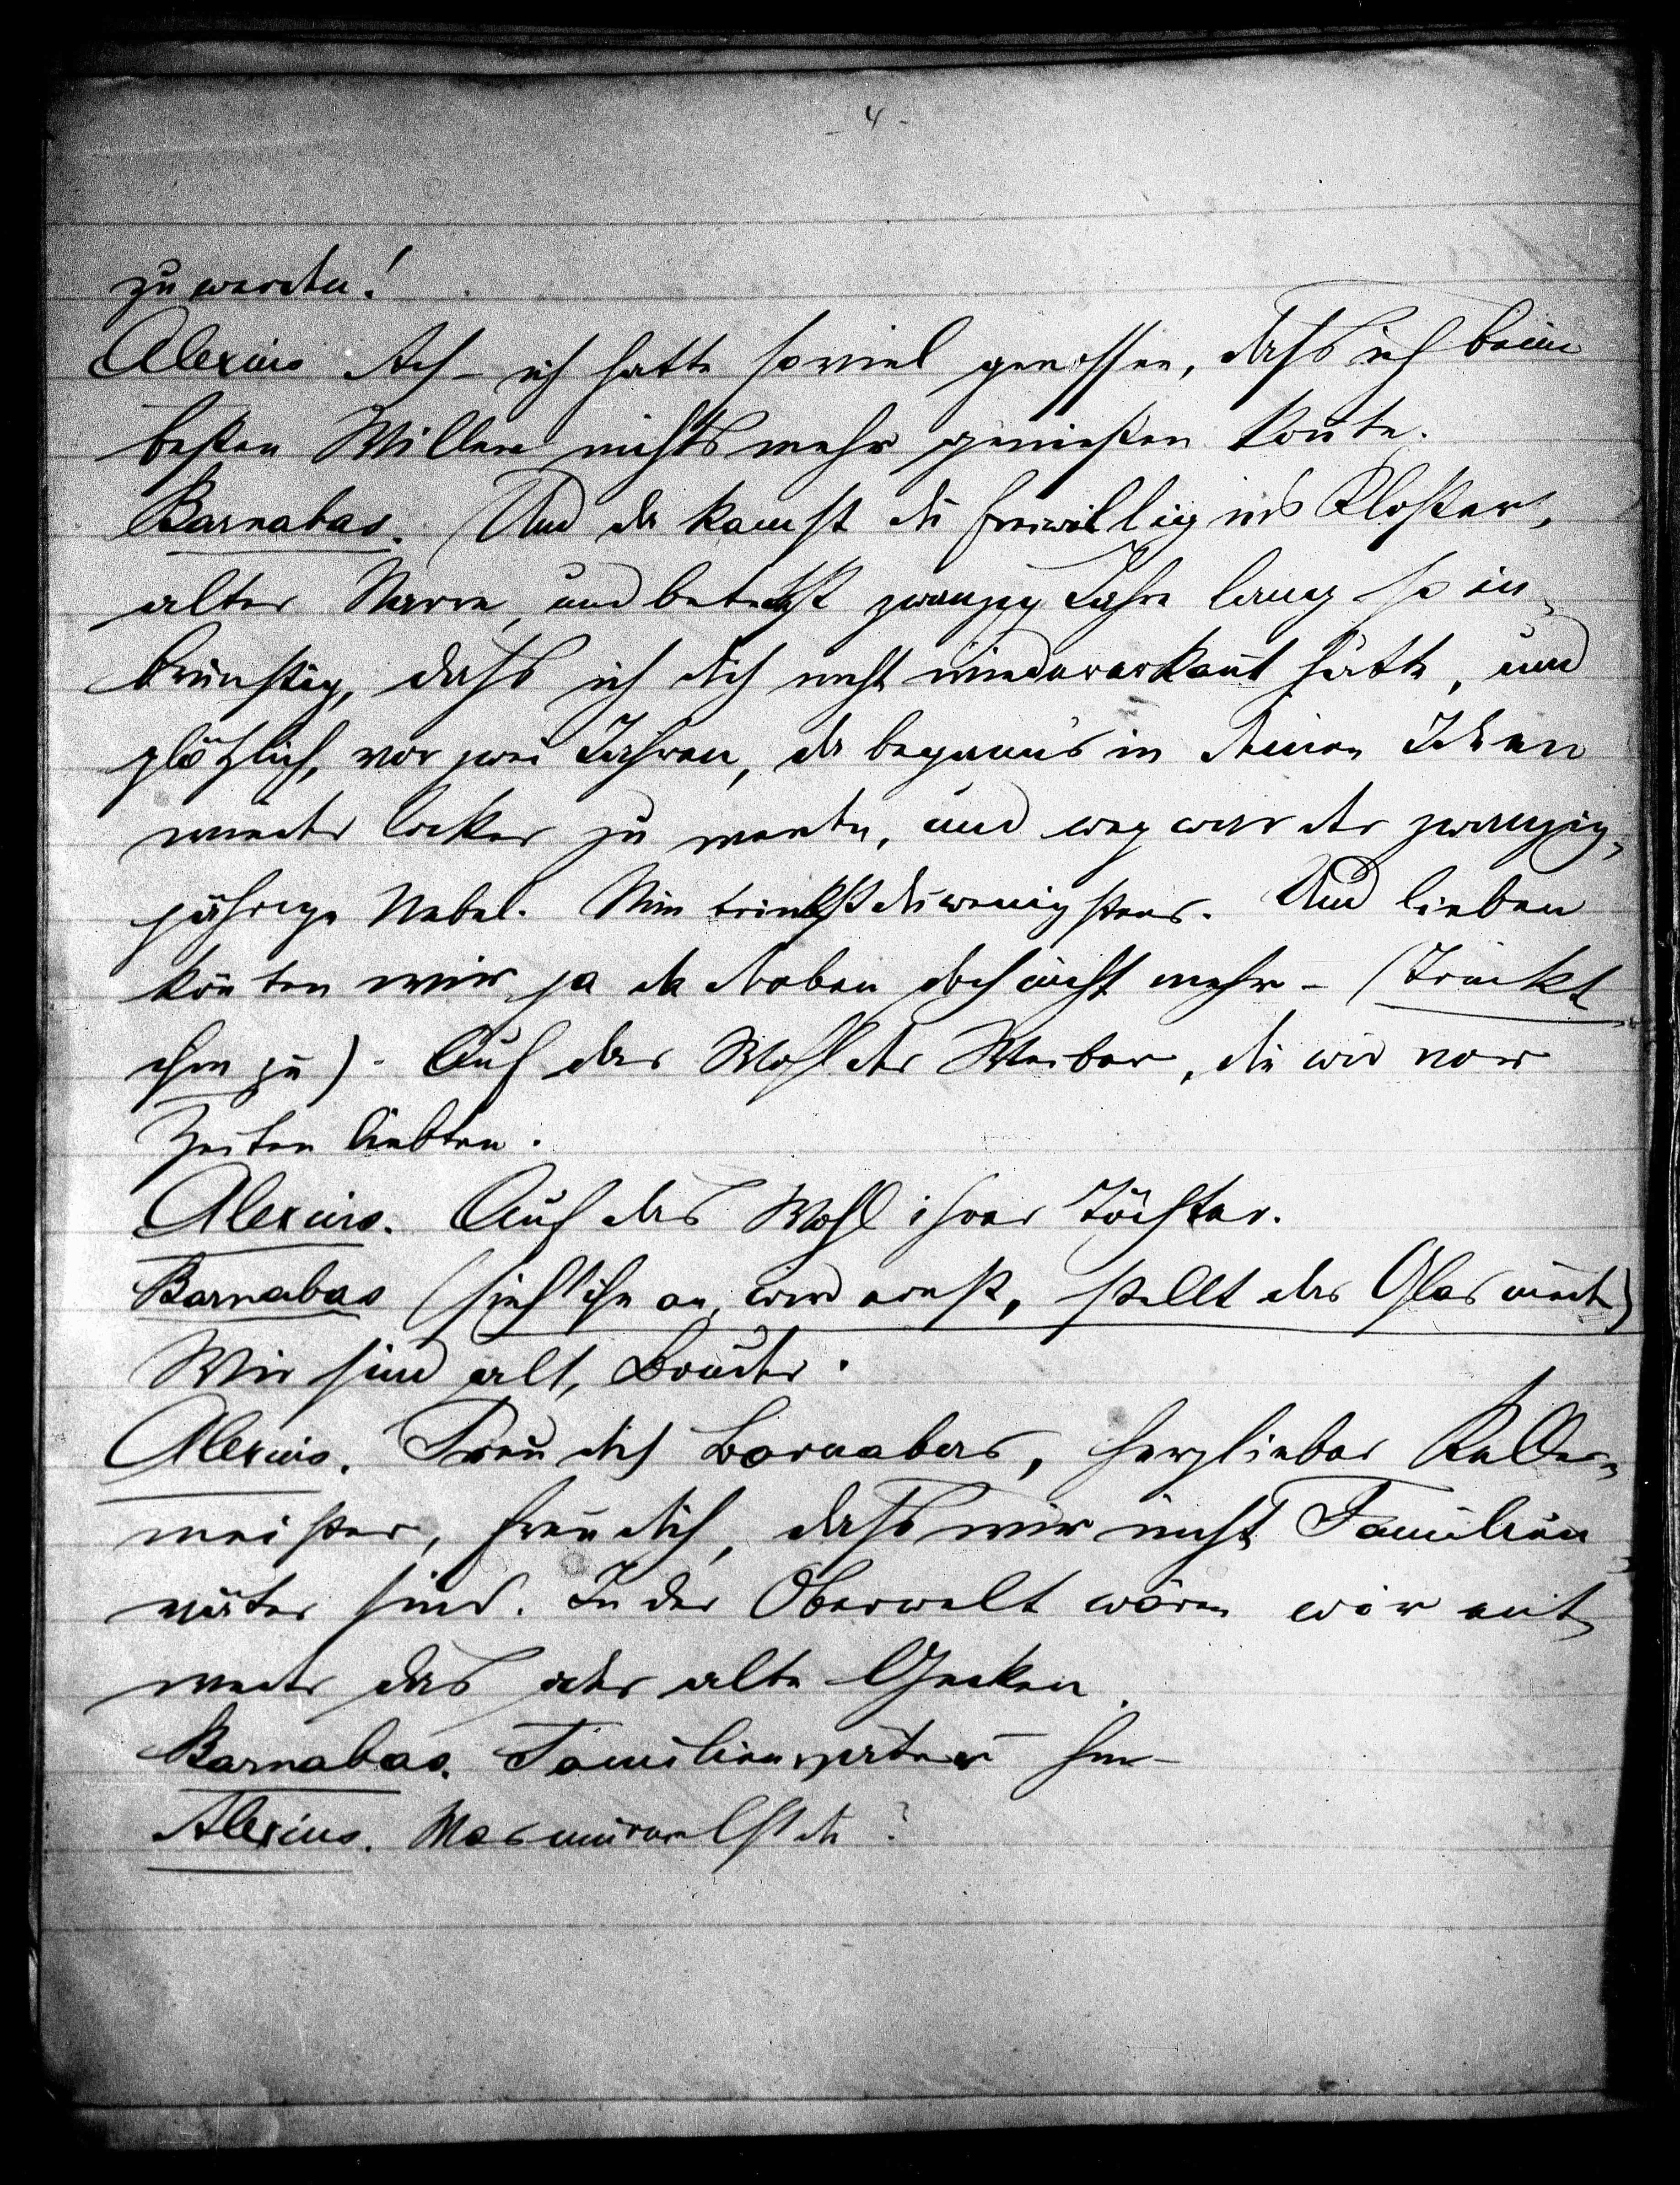 - 4 -
zu werden!
Alexius Ach – ich hatte so viel genossen, dass ich beim
besten Willen nichts mehr genießen konte.
Barnabas. Und da kamst du freiwillig ins Kloster,
alter Narr, und betetest zwanzig Jahre lang so in-
brünstig, dass ich dich nicht wiedererkant hätte, und
plötzlich, vor zwei Jahren, da begann's in deinen Ideen
wieder locker zu werden, und weg war der zwanzig-
jährige Nebel. Nun trinkst du wenigstens. Und lieben
könten wir ja da droben doch nicht mehr – (Trinkt
ihm zu) - Auf das Wohl der Weiber, die wir vor
Zeiten liebten.
Alexius. Auf das Wohl ihrer Töchter.
Barnabas (sieht ihn an, wird ernst, stellt das Glas nieder)
Wir sind alt, Bruder.
Alexius. Freu dich Barnabas, herzlieber Keller-
meister, freu dich, dass wir nicht Familien-
väter sind. In der Oberwelt wären wir ent-
weder das oder alte Gecken.
Barnabas. Familienväter hm –
Alexius. Was murmelst du?